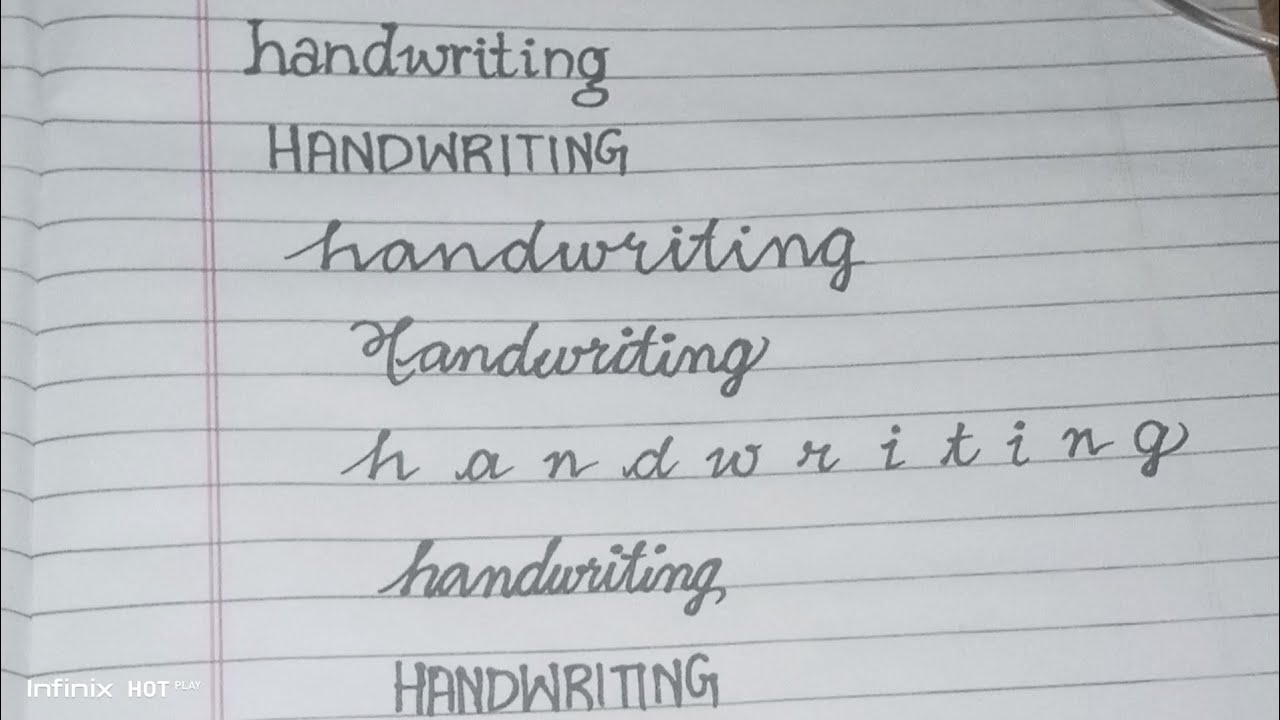 handwriting
HANDWRITING
handwriting
Handwriting
h a n d w r i t i n g
handwriting
HANDWRITING
Infinix HOT PLAY